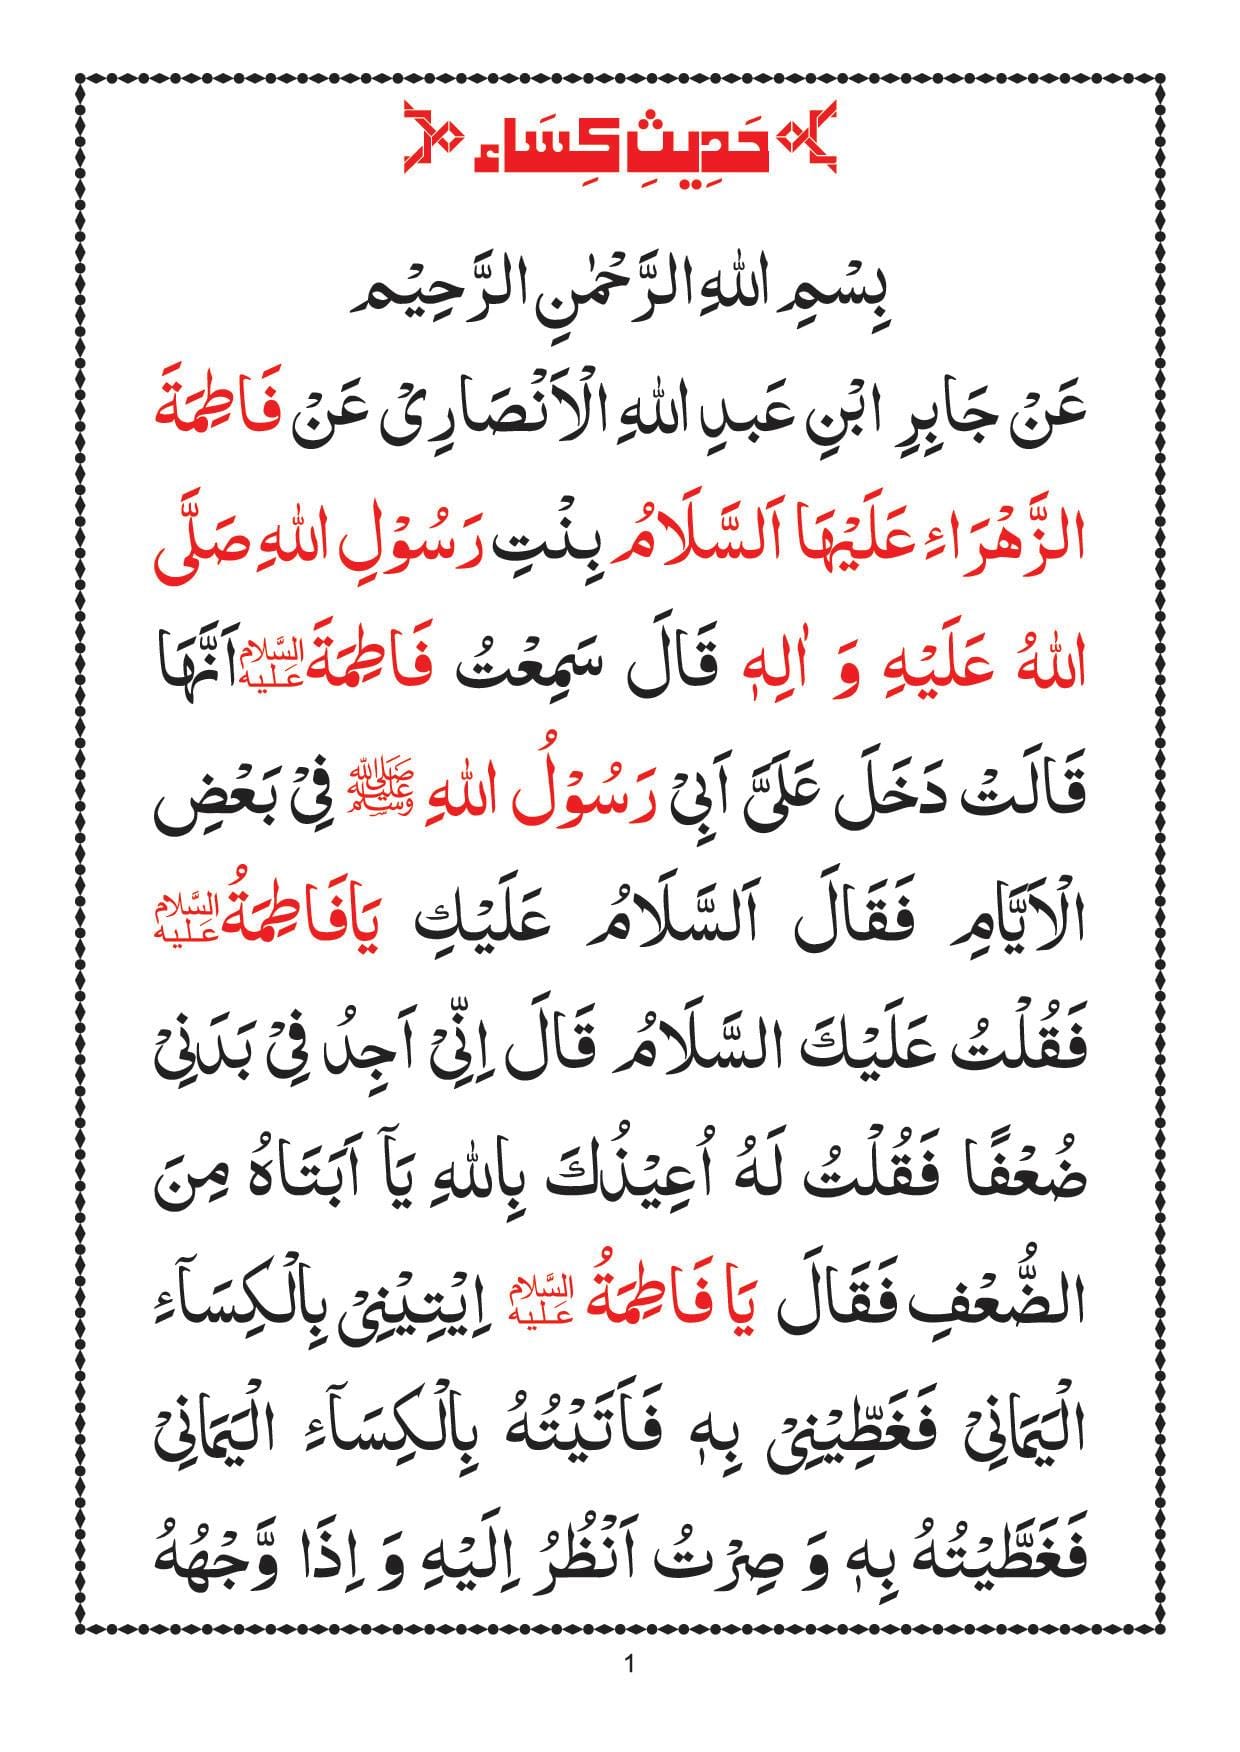 حَدِيثِ كِسَاء
بِسْمِ اللهِ الرَّحْمٰنِ الرَّحِيْم
عَنْ جَابِرِ ابْنِ عَبدِ اللهِ الْاَنْصَارِىْ عَنْ فَاطِمَةَ
الزَّهْرَاءِ عَلَيْهَا اَلسَّلَامُ بِنْتِ رَسُوْلِ اللهِ صَلَّى
اللهُ عَلَيْهِ وَ اٰلِهٖ قَالَ سَمِعْتُ فَاطِمَةَ عليه السلام اَنَّهَا
قَالَتْ دَخَلَ عَلَىَّ اَبِىْ رَسُوْلُ اللهِ ﷺ فِىْ بَعْضِ
الْاَيَّامِ فَقَالَ اَلسَّلَامُ عَلَيْكِ يَافَاطِمَةُ عليه السلام
فَقُلْتُ عَلَيْكَ السَّلَامُ قَالَ اِنِّىْ اَجِدُ فِىْ بَدَنِىْ
ضُعْفًا فَقُلْتُ لَهُ اُعِيْذُكَ بِاللهِ يَآ اَبَتَاهُ مِنَ
الضُّعْفِ فَقَالَ يَا فَاطِمَةُ عليه السلام اِيْتِيْنِىْ بِالْكِسَآءِ
الْيَمَانِىْ فَغَطِّيْنِىْ بِهٖ فَاَتَيْتُهُ بِالْكِسَآءِ الْيَمَانِىْ
فَغَطَّيْتُهُ بِهٖ وَ صِرْتُ اَنْظُرُ اِلَيْهِ وَ اِذَا وَّجْهُهُ
1